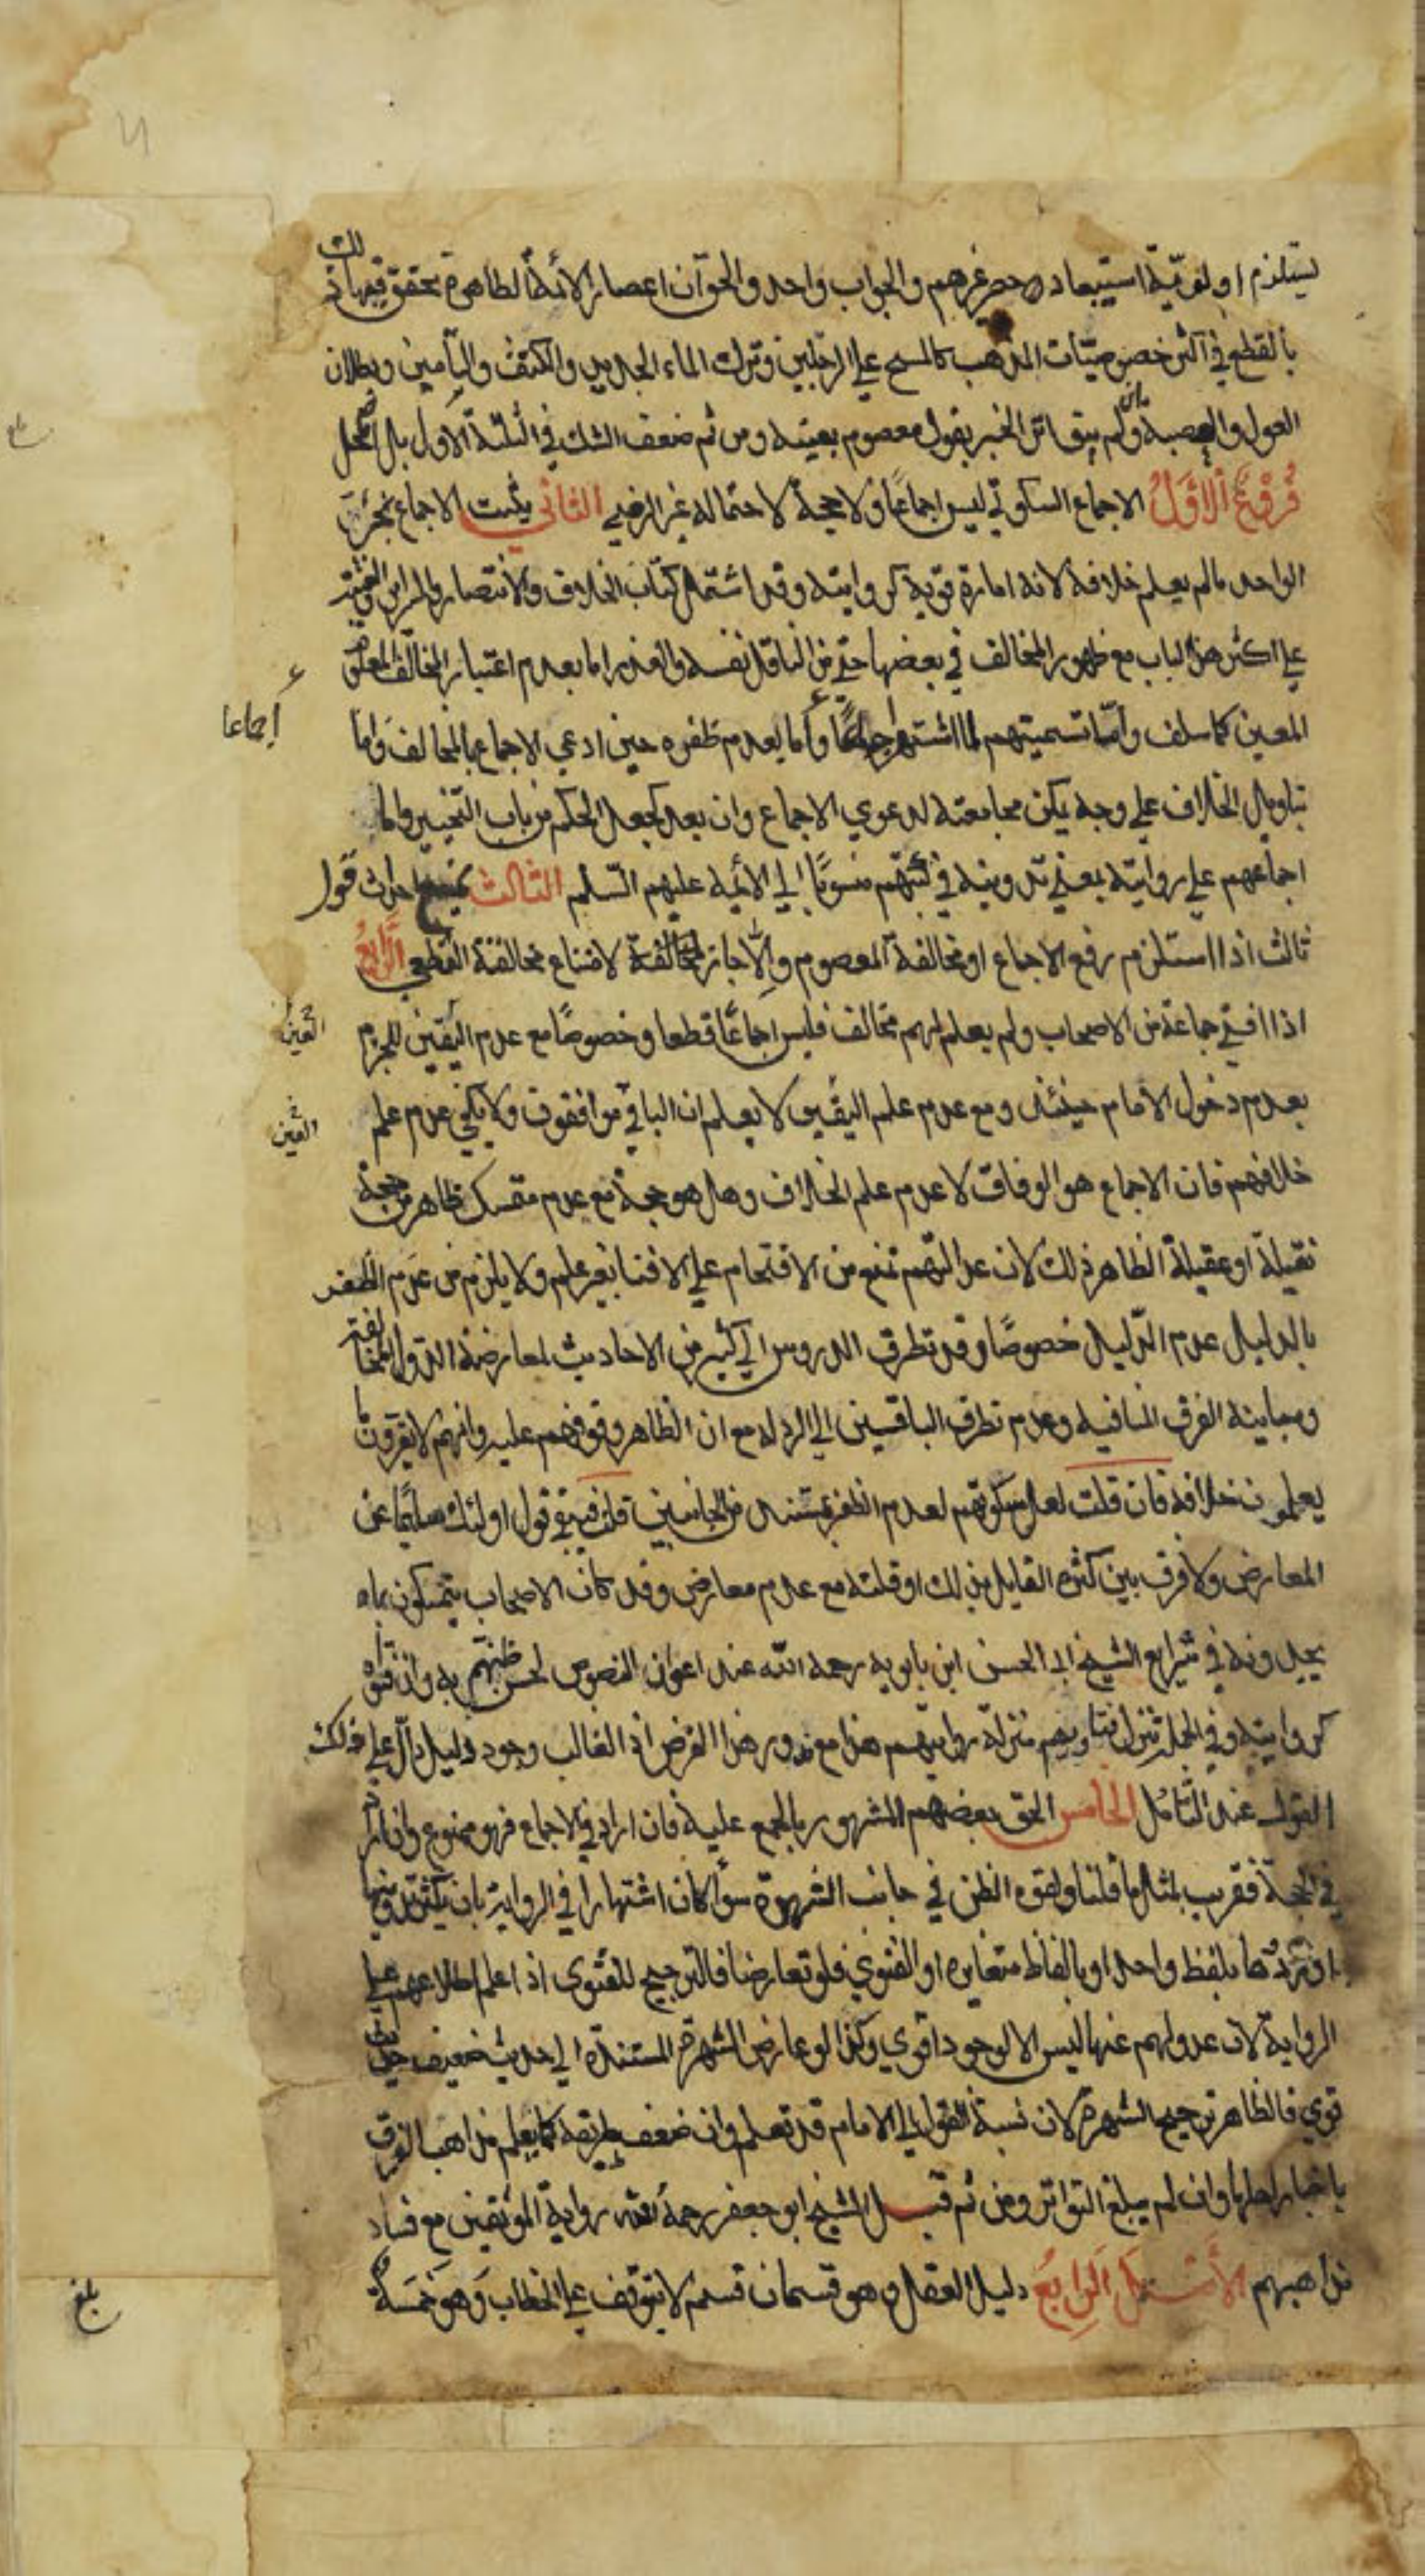 يستلزم اولوية استبعاد حصر غيرهم والجواب واحد والحق ان اعصار الائمة الطاهرة تحقق فيها ذلك
بالقطع في اكثر خصوصيات المذهب كالمسح علي الرجلين وترك الماء الجديد والكتف والتأمين وبطلان
العول والعصبة وان لم يتواتر الخبر بقول معصوم بعينه ومن ثم ضعف الشك في الثلثة الاول بل اضمحل
فروع الاول الاجماع السكوتي ليس اجماعا ولا حجة لاحتماله غير الرضي الثاني يثبت الاجماع بخبر
الواحد ما لم يعلم خلافه لانه امارة قوية كروايته وقد اشتمل كتاب الخلاف والانتصار والسرائر والغنية
علي اكثر هذا الباب مع ظهور المخالف في بعضها حتي من الناقل نفسه والعذر اما بعدم اعتبار المخالف المعلوم
المعين كما سلف واما تسميتهم لما اشتهر اجماعا واما بعدم ظفره حين ادعي الاجماع بالمخالف واما
بتاويل الخلاف علي وجه يمكن مجامعته لدعوي الاجماع وان بعد كجعل الحكم من باب التخيير واما
اجماعهم علي روايته بمعني تدوينه في كتبهم منسوبا الي الائمة عليهم السلم الثالث يمتنع احداث قول
ثالث اذا استلزم رفع الاجماع او مخالفة المعصوم والا جاز لمخالفة لامتناع مخالفة القطعي الرابع
اذا افتي جماعة من الاصحاب ولم يعلم لهم مخالف فليس اجماعا قطعا وخصوصا مع عدم اليقين للجزم
بعدم دخول الامام حينئذ ومع عدم علم اليقين لا يعلم ان الباقي موافقون ولا يكفي عدم علم
خلافهم فان الاجماع هو الوفاق لا عدم علم الخلاف وهل هو حجة مع عدم متمسك ظاهر من حجة
نقيلة او عقيلة الظاهر ذلك لان عدالتهم تمنع من الاقتحام علي الافتا بغير علم ولا يلزم من عدم الظفر
بالدليل عدم الدليل خصوصا وقد تطرق الدروس الي كثير من الاحاديث لمعارضة الدول المخالفة
ومباينة الفرق المنافية وعدم تطرق الباقين الي الرد له مع ان الظاهر وقوفهم عليه وانهم لا يقرون ما
يعلمون خلافه فان قلت لعل سكوتهم لعدم الظفر بمستند من الجانبين قلت فيبقي قول اولئك سليما عن
المعارض ولا فرق بين كثرة القايل بذلك او قلته مع عدم معارض وقد كان الاصحاب يتمسكون بما
يجدونه في شرايع الشيخ ابي الحسن ابن بابويه رحمه الله عند اعواز النصوص لحسن ظنهم به وان فتواه
كروايته وفي الجملة تنزل فتاويهم منزلة روايتهم هذا مع ندور هذا الفرض اذ الغالب وجود دليل دال علي ذلك
القول عند التامل الخامس الحق بعضهم المشهور بالمجمع عليه فان اراد في الاجماع فهو ممنوع وان اراد
في الحجة فقريب لمثل ما قلنا ولقوة الظن في جانب الشهرة سوا كان اشتهارا في الرواية بان يكثر تدوينها
او تردها بلفظ واحد او بالفاظ متغايرة او الفتوي فلو تعارضا فالترجيح للفتوى اذا علم اطلاعهم علي
الرواية لان عدولهم عنها ليس الا لوجود اقوي وكذا لو عارض الشهرة المستندة الي حديث ضعيف حديث
قوي فالظاهر ترجيح الشهرة لان نسبة القول الي الامام قد تعلم وان ضعف طريقه كما يعلم مذاهب الفرق
باخبار اهلها وان لم يبلغ التواتر ومن ثم قبل الشيخ ابو جعفر رحمه الله رواية الموثقين مع فساد
مذاهبهم الاصل الرابع دليل العقل وهو قسمان قسم لا يتوقف علي الخطاب وهو خمسة
إجماعا
اليقين
اليقين
بلغ